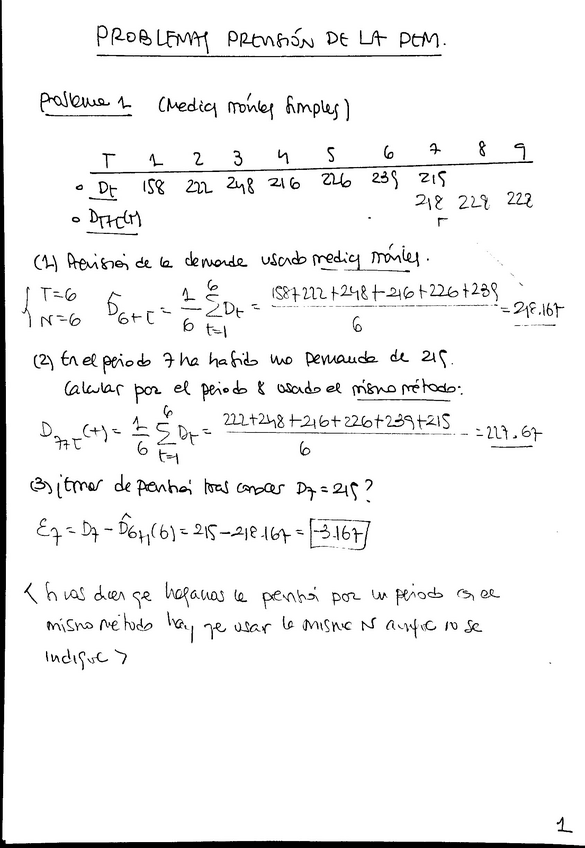 PROBLEMAS PREVISIÓN DE LA DEM.
Problema 1 (Medias móviles simples)
T 1 2 3 4 5 6 7 8 9
Dt 158 222 248 216 226 239 215
218 228 228
D̂T+τ(T)
(1) Previsión de la demanda usando medias móviles.
{ T=6 N=6 D̂6+τ = 1/6 Σ(t=1, 6) Dt = (158+222+248+216+226+239)/6 = 218.167
(2) En el periodo 7 ha habido una Demanda de 215.
Calcular por el periodo 8 usando el mismo método:
D7+τ(t) = 1/6 Σ(t=1, 6) Dt = (222+248+216+226+239+215)/6 = 227.67
(3) ¿Error de previsión tras conocer D7=215?
ε7 = D7 − D̂6+1(6) = 215 − 218.167 = -3.167
< Si nos dicen qe hagamos la previsión por un periodo con el
mismo método hay qe usar la misma N aunque no se
indique >
1